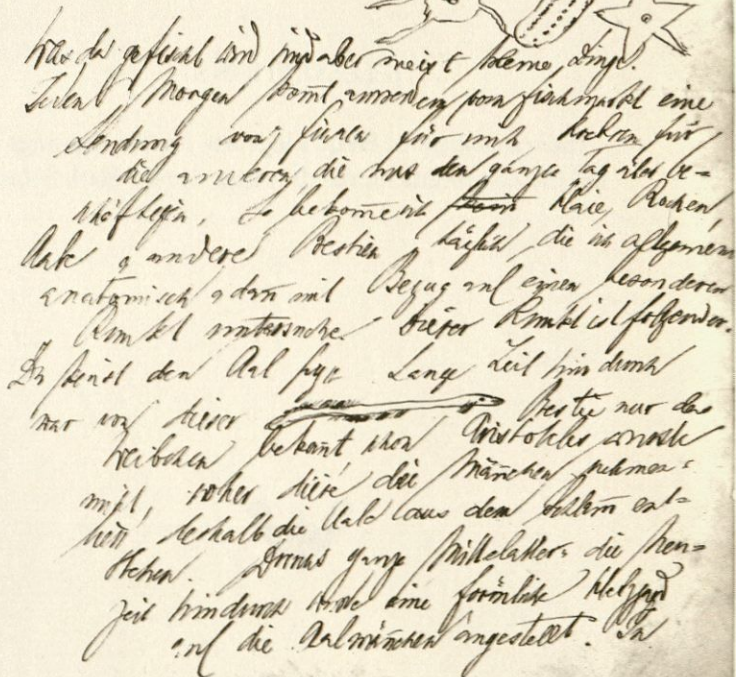 Was da gefischt wird sind aber meist kleine Dinge.
Jeden Morgen komt vom Fischmarkt eine
Sendung von Fischen für mich Kochen für
die anderen, die uns den ganzen Tag über be=
schäftigen. So bekome ich Haie, Rochen,
Aale u andere Bestien täglich, die ich allgemein
anatomisch u dan mit Bezug auf einen besonderen
Punkt untersuche. Dieser Punkt ist folgender.
Du kenst den Aal. Lange Zeit hindurch
war von dieser Bestie nur das
Weibchen bekant schon Aristoteles wusste
nicht, woher diese die Mänchen nehmen
liess deshalb die Aale aus dem Schlam ent=
stehen. Durchs ganze Mittelalter u die Neu=
zeit hindurch wurde eine förmliche Hetzjagd
auf die Aalmänchen angestellt. In